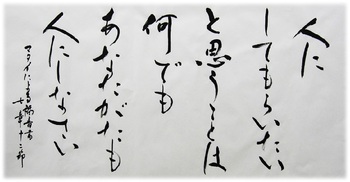 人に
してもらいたい
と思うことは
何でも
あなたがたも
人にしなさい
マタイによる福音書
七章十二節